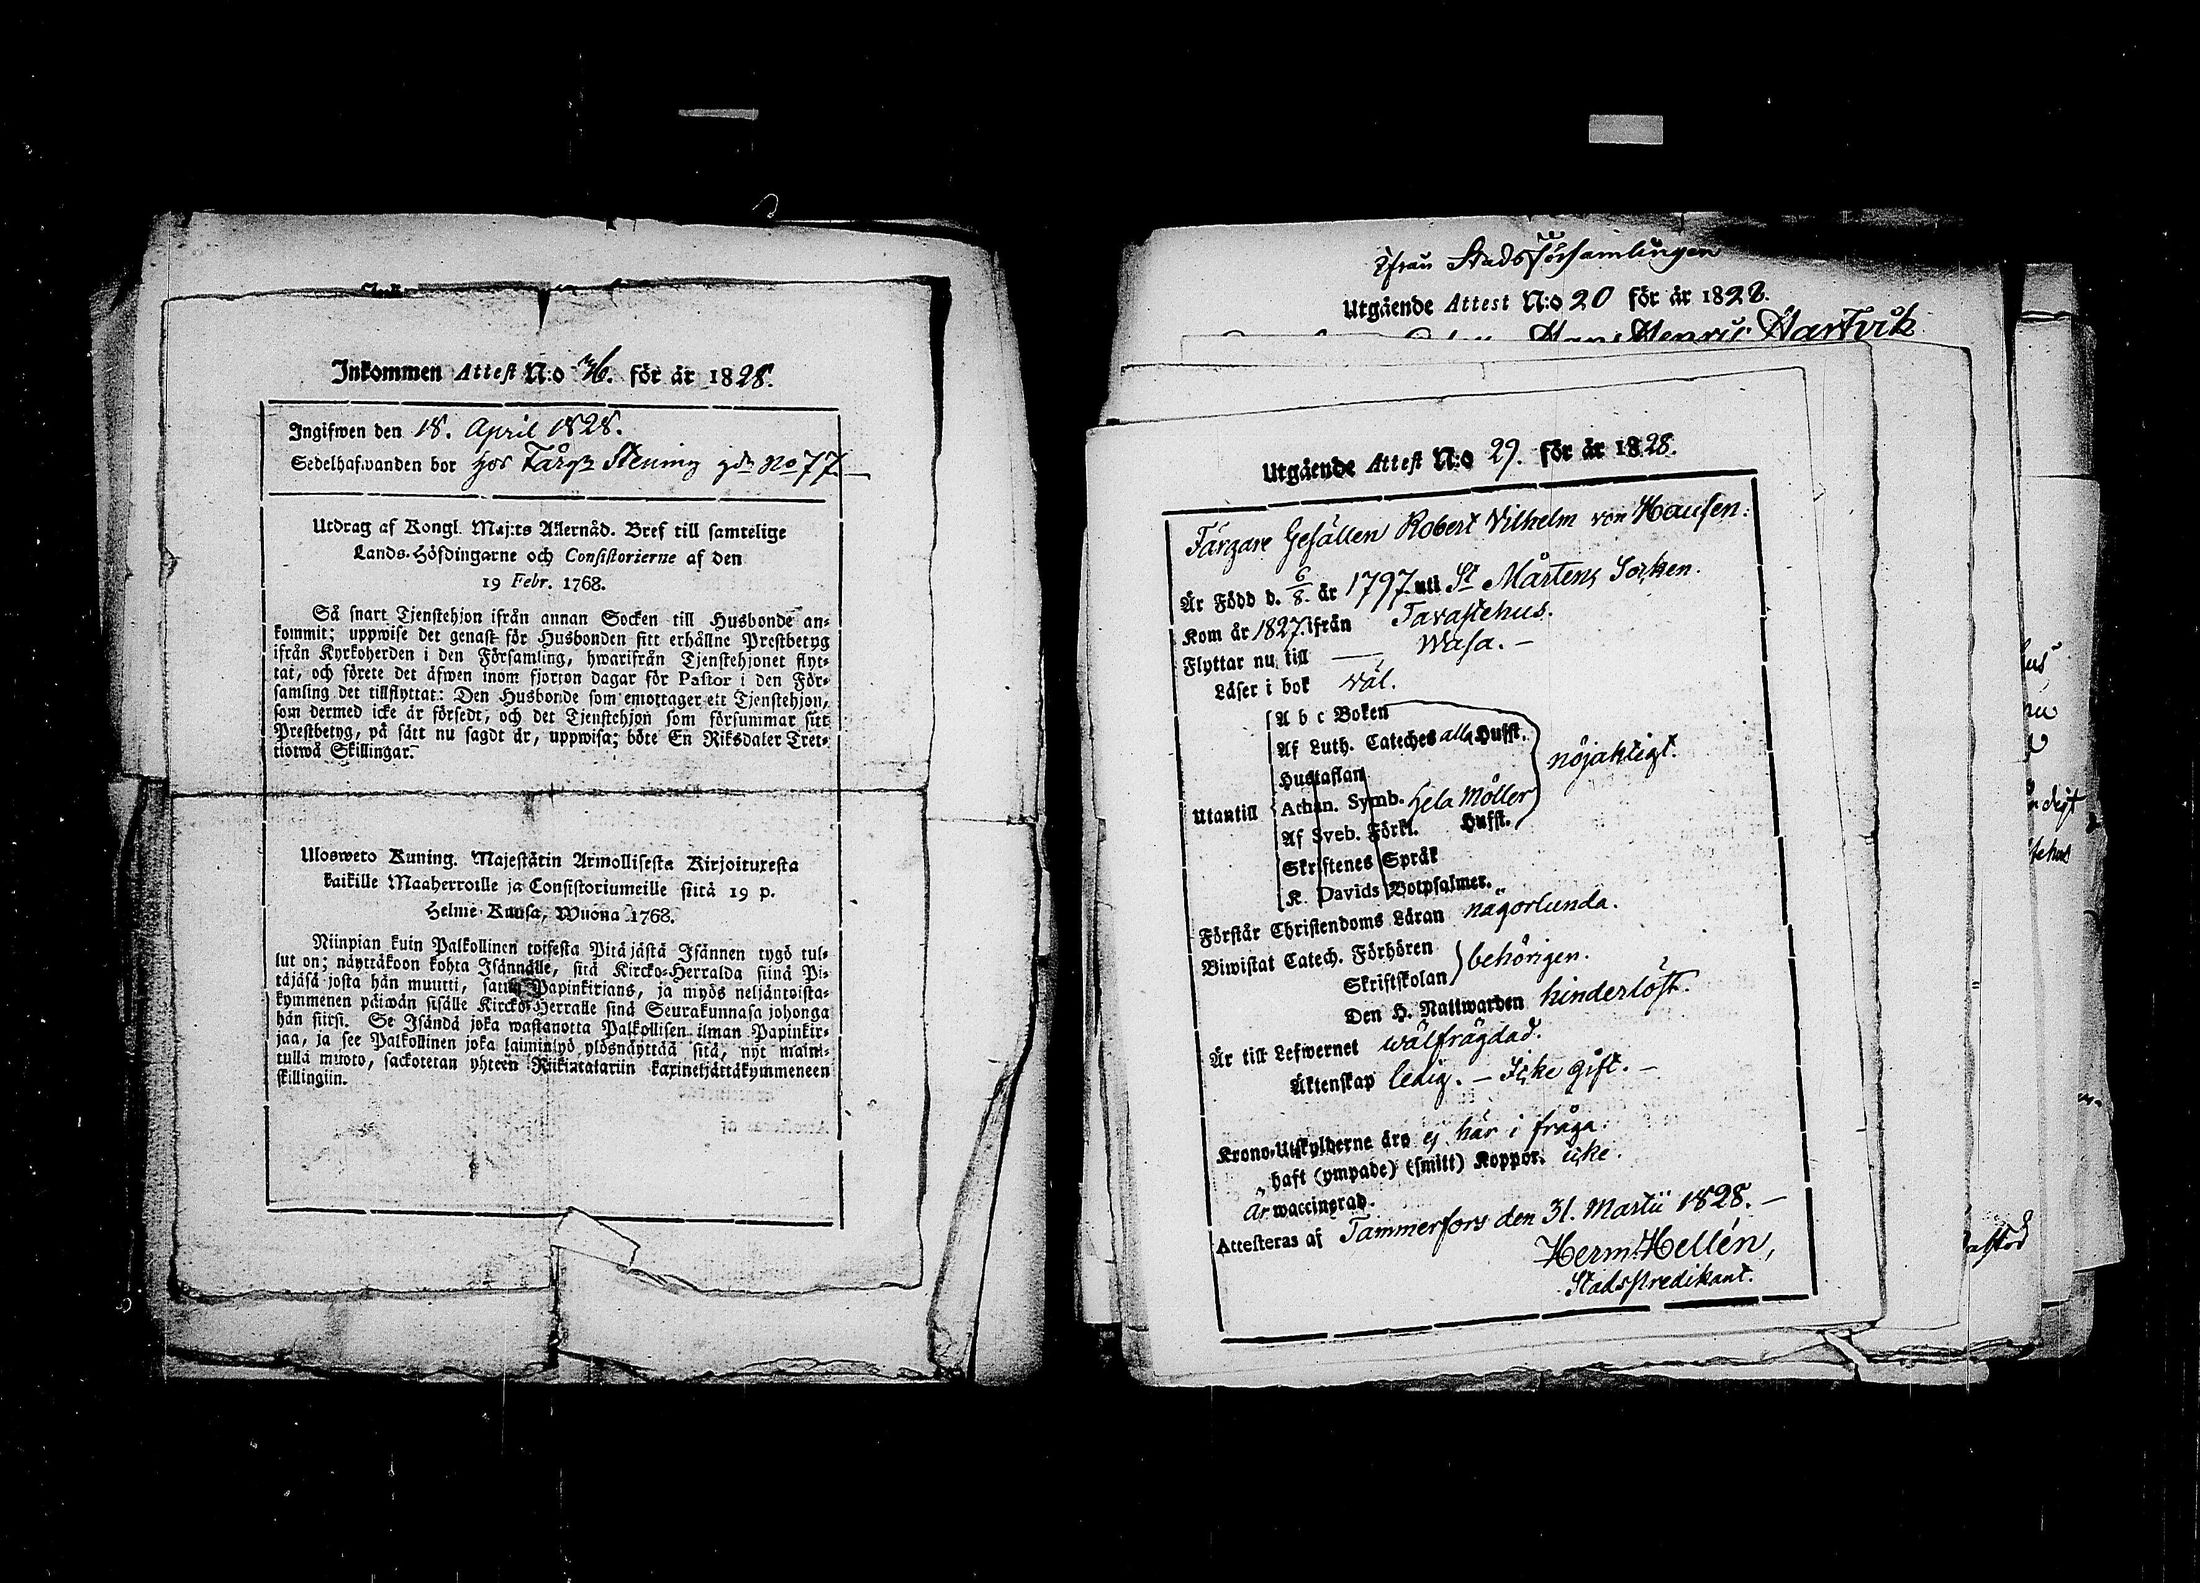 Inkommen Attest N:o 36. för år 1828.
Ingifwen den 18. April 1828.
Sedelhafwanden bor hos Färg: Stening gdn No 77.
Utdrag af Kongl. Maj:ts Allernåd. Bref till samtelige
Lands-Höfdingarne och Consistorierne af den
19 Febr. 1768.
Så snart Tjenstehjon ifrån annan Socken till Husbonde an-
kommit; uppwise det genast för Husbonden sitt erhållne Prestbetyg
ifrån Kyrkoherden i den Församling, hwarifrån Tjenstehjonet flyt-
tat, och förete det äfwen inom fjorton dagar för Pastor i den För-
samling det tillflyttat: Den Husbonde som emottager ett Tjenstehjon,
som dermed icke är försedt, och det Tjenstehjon som försummar sitt
Prestbetyg, på sätt nu sagdt är, uppwisa; böte En Riksdaler Tret-
tiotwå Skillingar.
Ulosweto Kuning. Majestätin Armollisesta Kirjoituxesta
kaikille Maaherroille ja Consistoriumeille siitä 19 p.
Helme-Kuusa, Wuona 1768.
Niinpian kuin Palkollinen toisesta Pitäjästä Isännen tygö tul-
lut on; näyttäkoon kohta Isännälle, sitä Kircko-Herralda siinä Pi-
täjäsä josta hän muutti, saatu Papinkirjans, ja myös neljäntoista-
kymmenen päiwän sisälle Kircko-Herralle siinä Seurakunnasa johonga
hän siirsi. Se Isändä joka wastanotta Palkollisen ilman Papinkir-
jaa, ja see Palkollinen joka laiminlyö ylösnäyttää sitä, nyt maini-
tulla muoto, sackotetan yhteen Riikintalariin kaxineljättäkymmeneen
skillingiin.
Ifrån Stadsförsamlingen
Utgående Attest N:o 20 för år 1828.
Hans Henric Hartvik
Utgående Attest N:o 29. för år 1828.
Färgare Gesällen Robert Vilhelm von Hausen:
Är Född d. 6/8. år 1797. uti St Mårtens Socken.
Kom år 1827. ifrån Tavastehus.
Flyttar nu till — Wasa. —
Läser i bok väl.
A b c Boken
Af Luth. Cateches alla Husst.
Hustaflan
Utantill Athan. Symb. hela Möller nöjaktigt.
Af Sveb. Förkl. Husst.
Skriftenes Språk
K. Davids Botpsalmer.
Förstår Christendoms Läran någorlunda.
Biwistat Catech. Förhören
Skriftskolan behörigen.
Den H. Nattwarden hinderlöst.
Är till Lefwernet wälfrägdad.
Äktenskap ledig. — Icke gift. —
Krono-Utskylderne äro ej här i fråga.
haft (ympade) (smitt) Koppor. icke.
Är waccinerad.
Attesteras af Tammerfors den 31. Martii 1828. —
Herm. Hellén,
Stadspredikant.